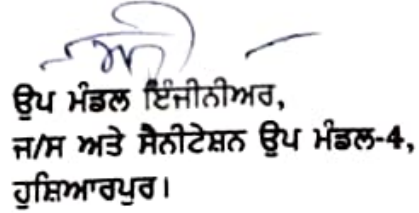 ਉਪ ਮੰਡਲ ਇੰਜੀਨੀਅਰ,
ਜ/ਸ ਅਤੇ ਸੈਨੀਟੇਸ਼ਨ ਉਪ ਮੰਡਲ-4,
ਹੁਸ਼ਿਆਰਪੁਰ।